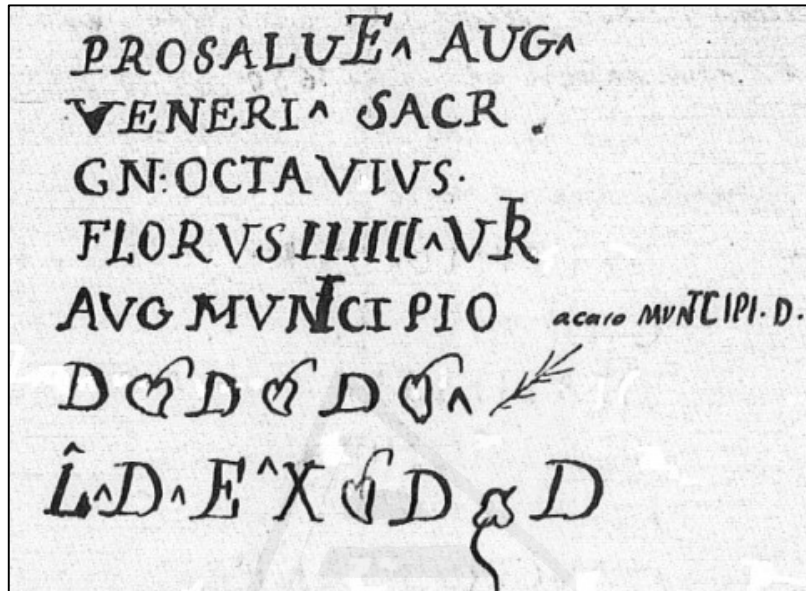 PROSALUTE^ AUG^
VENERI^ SACR.
GN:OCTAVIVS.
FLORVS IIIIII^VIR
AVG MVNICIPIO acaso MVNICIPI.D.
D D D ^
L^D^E^X D D